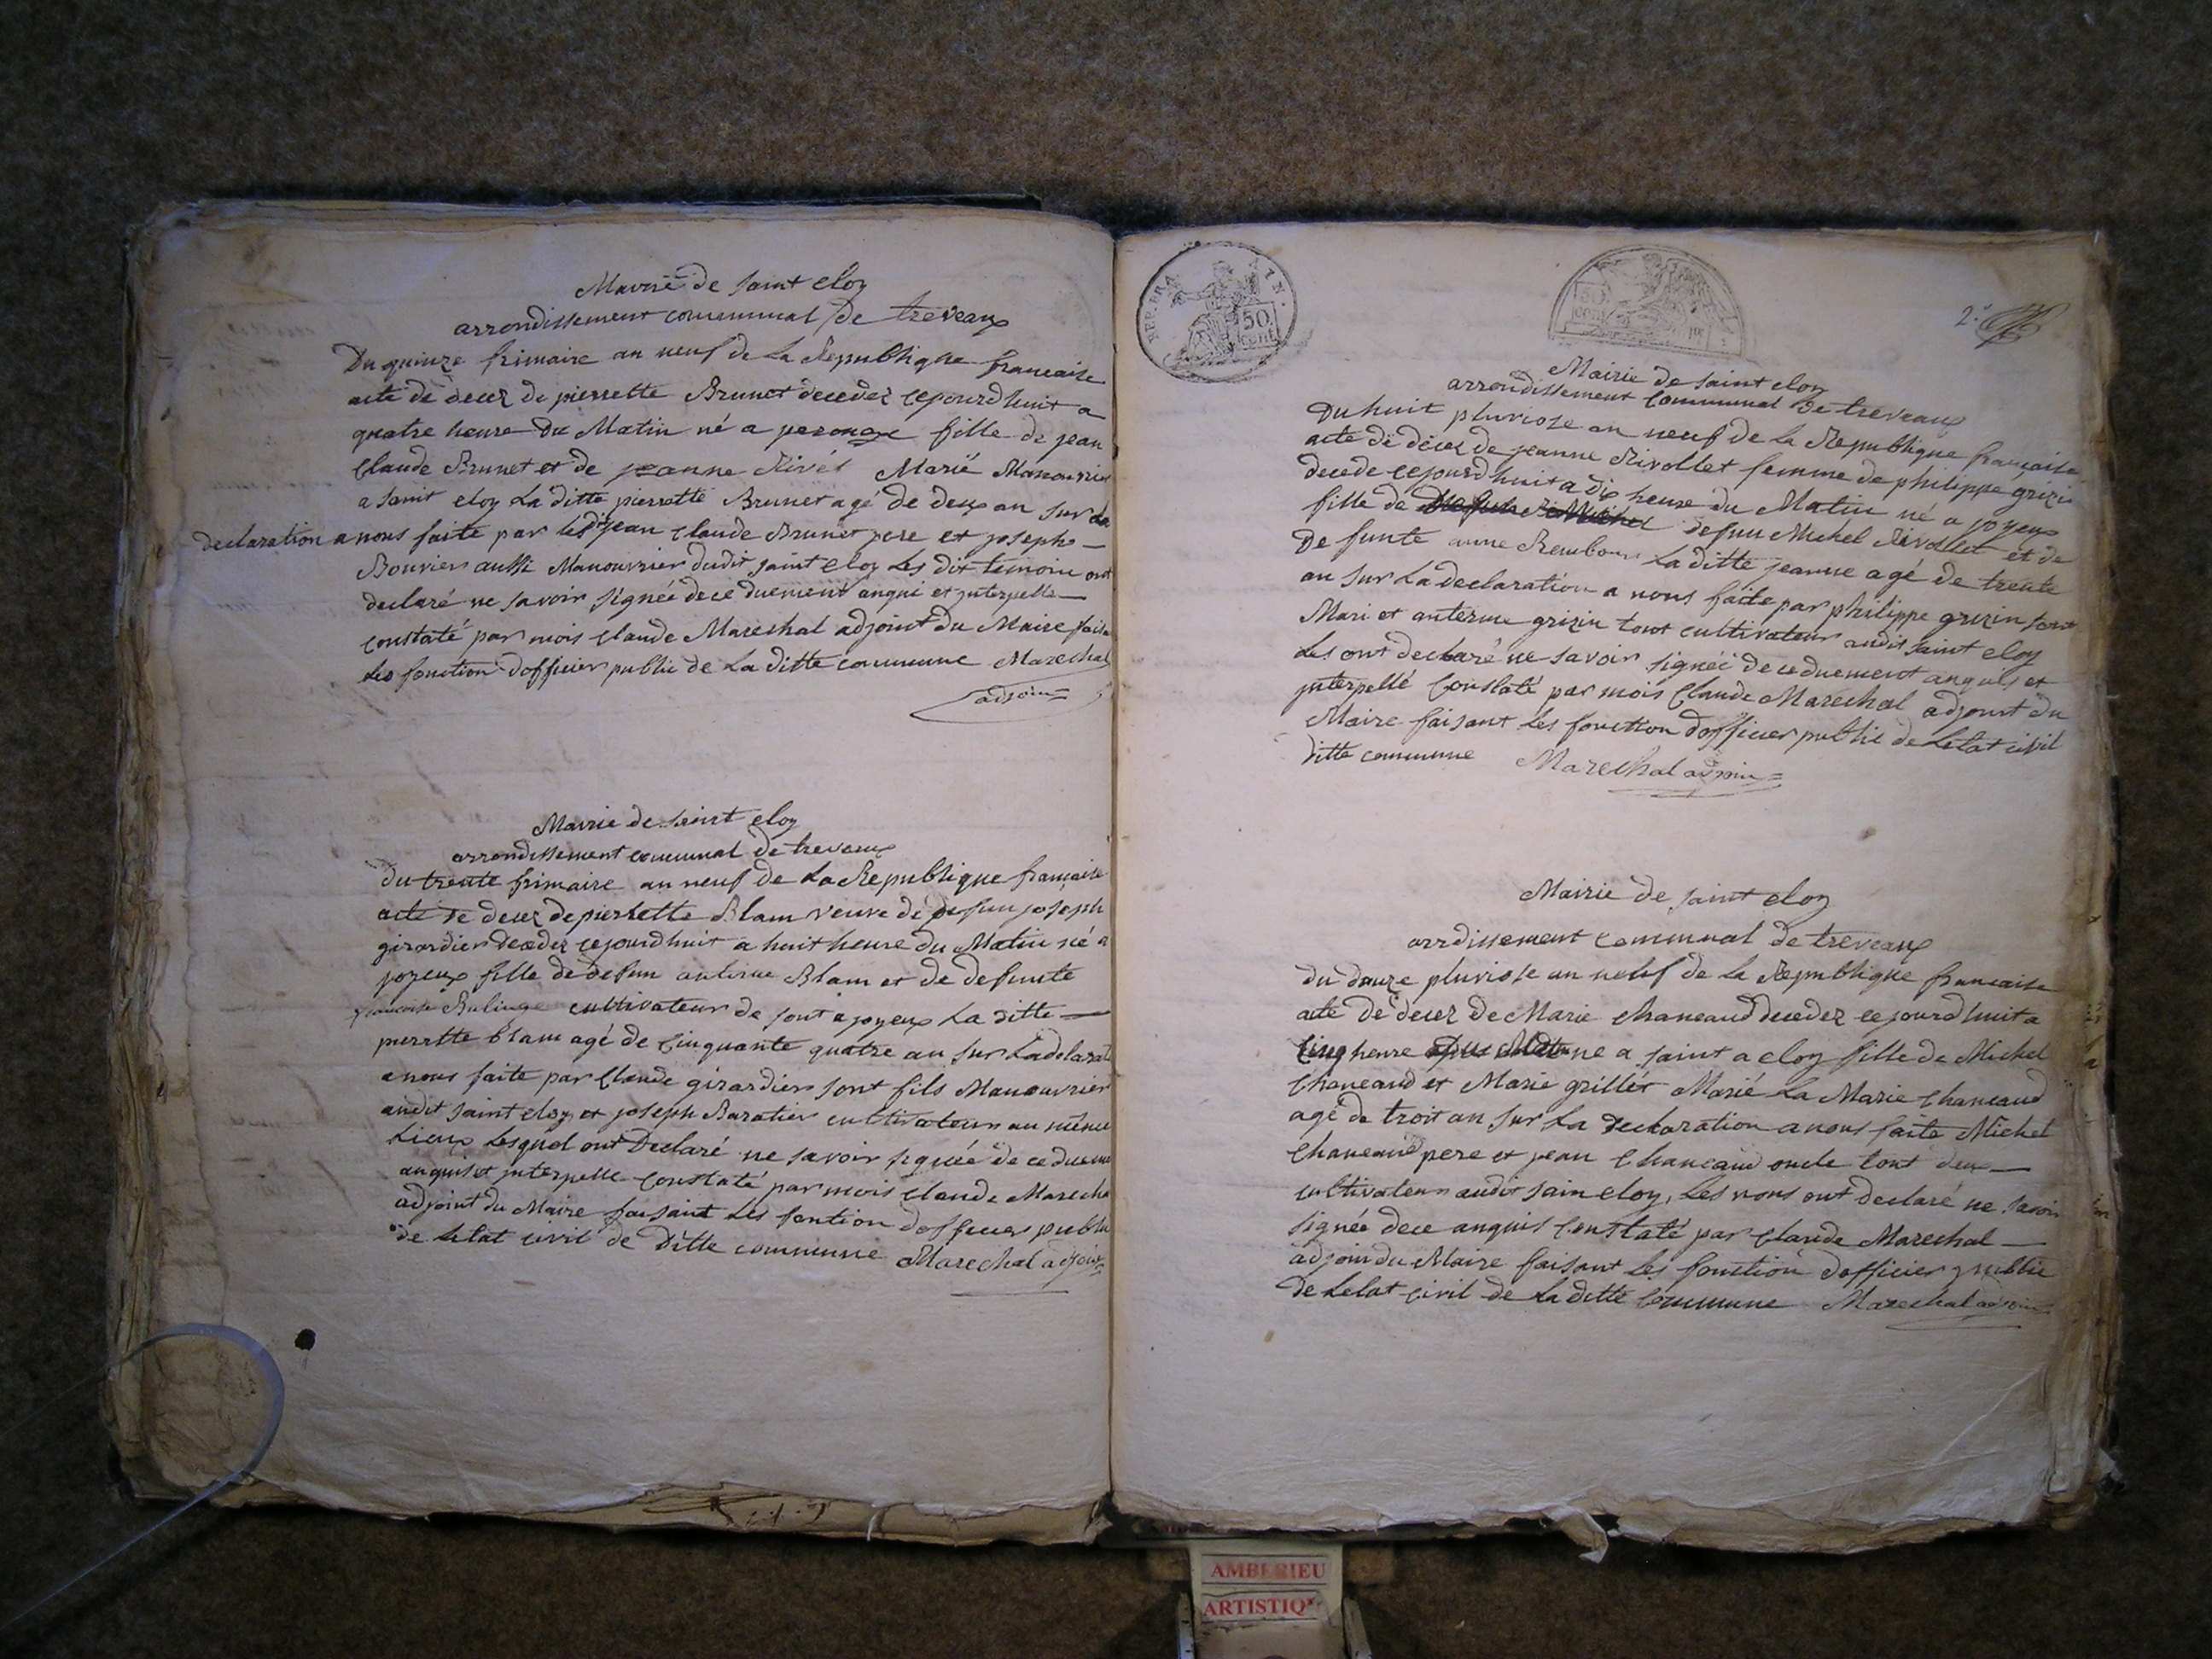 Mairie de saint eloy
arrondissement communal de treveaux
Du quinze frimaire an neuf de la Republique francaise
acte de decez de pierrette Brunet decedez cejourdhuit a
quatre heure du Matin né a perouge fille de jean
Claude Brunet et de jeanne Rivét Marié Manouvrier
a saint eloy La ditte pierrette Brunet agé de deux an sur la
declaration a nous faite par ledt jean Claude Brunet pere et joseph
Bouvier aussi Manouvrier dudit saint eloy Les dit temoin ont
declaré ne savoir signéé de ce duement anqui et jnterpelle
constaté par mois Claude Mareschal adjoint du Maire fais
les fonction dofficier public de La ditte commune Marechal
adjoin
Mairie de saint eloy
arrondissement communal de treveaux
du trente frimaire an neuf de La Republique francaise
acte de decez de pierrette Blam veuve de defun joseph
girardier decedez cejourdhuit a huit heure du Matin né a
joyeux fille de defun antoine Blam et de defunte
francoise Bulinge cultivateur de sont a joyeux La ditte
pierrette blam agé de Cinquante quatre an sur Ladelarat
a nous faite par Claude girardier sont fils Manouvrier
audit saint eloy et joseph Baratier cultivateur au même
Lieux Lesquel ont Declaré ne savoir signéé de ce dueme
anquis et jnterpelle constaté par mois Claude Marecha
adjoint du Maire faisant Les fontion dofficier public
de Letat civil de ditte commune Marechal adjoin
REP. FRA.
50 cent
50 cent
2.e
Mairie de saint eloy
arrondissement Communal de treveaux
Du huit pluviose an neuf de la Republique française
acte de decez de jeanne Rivollet femme de philippe grizin
decede cejourdhuit a dix heure du Matin né a joyeux
fille de defun Michel Rivollet et de
De funte anne La ditte jeanne agé de trente
an sur La declaration a nous faite par philippe grizin sont
Mari et anterme grizin tout cultivateur audit saint eloy
Les ont declaré ne savoir signéé de ce duement anquis et
jnterpellé Constaté par mois Claude Mareschal adjoint du
Maire faisant Les fonction dofficier public de Letat civil
ditte commune Marechal adjoin
Mairie de saint eloy
arrdissement Communal de treveaux
du douze pluviose an neuf de la Republique francaise
acte de decez de Marie Chaneaud decedez cejourdhuit a
Cinq heure ne a saint a eloy fille de Michel
Chaneaud et Marie grillet Marié La Marie Chaneaud
agé de troit an sur La declaration a nous faite Michel
Chaneaud pere et jean Chaneaud oncle tout deux
cultivateur audit sain eloy, Les nous ont declaré ne savoir
signéé dece anquis Constaté par Claude Mareschal
adjoin du Maire faisant Les fonction dofficier public
De Letat civil de La ditte Commune Marechal adjoin
AMBERIEU
ARTISTIQ